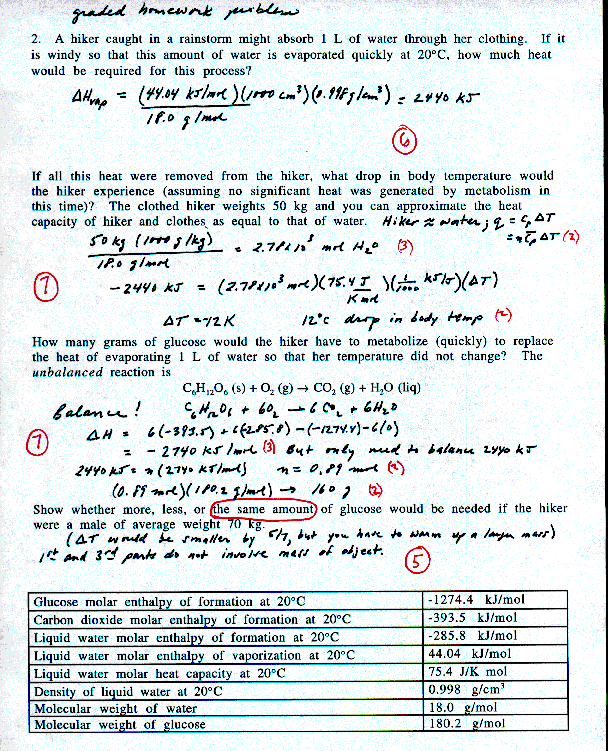 graded homework problem
2. A hiker caught in a rainstorm might absorb 1 L of water through her clothing. If it
is windy so that this amount of water is evaporated quickly at 20°C, how much heat
would be required for this process?
ΔHvap = (44.04 kJ/mol)(1000 cm³)(0.998 g/cm³) = 2440 kJ
18.0 g/mol
6
If all this heat were removed from the hiker, what drop in body temperature would
the hiker experience (assuming no significant heat was generated by metabolism in
this time)? The clothed hiker weights 50 kg and you can approximate the heat
capacity of hiker and clothes as equal to that of water. Hiker ≈ water; q = Cp ΔT
= n C̄p ΔT (2)
50 kg (1000 g/kg) = 2.78x10³ mol H₂O (3)
18.0 g/mol
7
-2440 kJ = (2.78x10³ mol)(75.4 J/K mol)(1/1000 kJ/J)(ΔT)
ΔT = -12K 12°C drop in body temp (2)
How many grams of glucose would the hiker have to metabolize (quickly) to replace
the heat of evaporating 1 L of water so that her temperature did not change? The
unbalanced reaction is
C₆H₁₂O₆ (s) + O₂ (g) → CO₂ (g) + H₂O (liq)
Balance! C₆H₁₂O₆ + 6O₂ → 6 CO₂ + 6H₂O
7
ΔH = 6(-393.5) + 6(-285.8) - (-1274.4) - 6(0)
= -2740 kJ/mol (3) But only need to balance 2440 kJ
2440 kJ = n (2740 kJ/mol) n = 0.89 mol (2)
(0.89 mol)(180.2 g/mol) → 160 g (2)
Show whether more, less, or the same amount of glucose would be needed if the hiker
were a male of average weight 70 kg.
(ΔT would be smaller by 5/7, but you have to warm up a larger mass)
1st and 3rd parts do not involve mass of object.
5
Glucose molar enthalpy of formation at 20°C -1274.4 kJ/mol
Carbon dioxide molar enthalpy of formation at 20°C -393.5 kJ/mol
Liquid water molar enthalpy of formation at 20°C -285.8 kJ/mol
Liquid water molar enthalpy of vaporization at 20°C 44.04 kJ/mol
Liquid water molar heat capacity at 20°C 75.4 J/K mol
Density of liquid water at 20°C 0.998 g/cm³
Molecular weight of water 18.0 g/mol
Molecular weight of glucose 180.2 g/mol